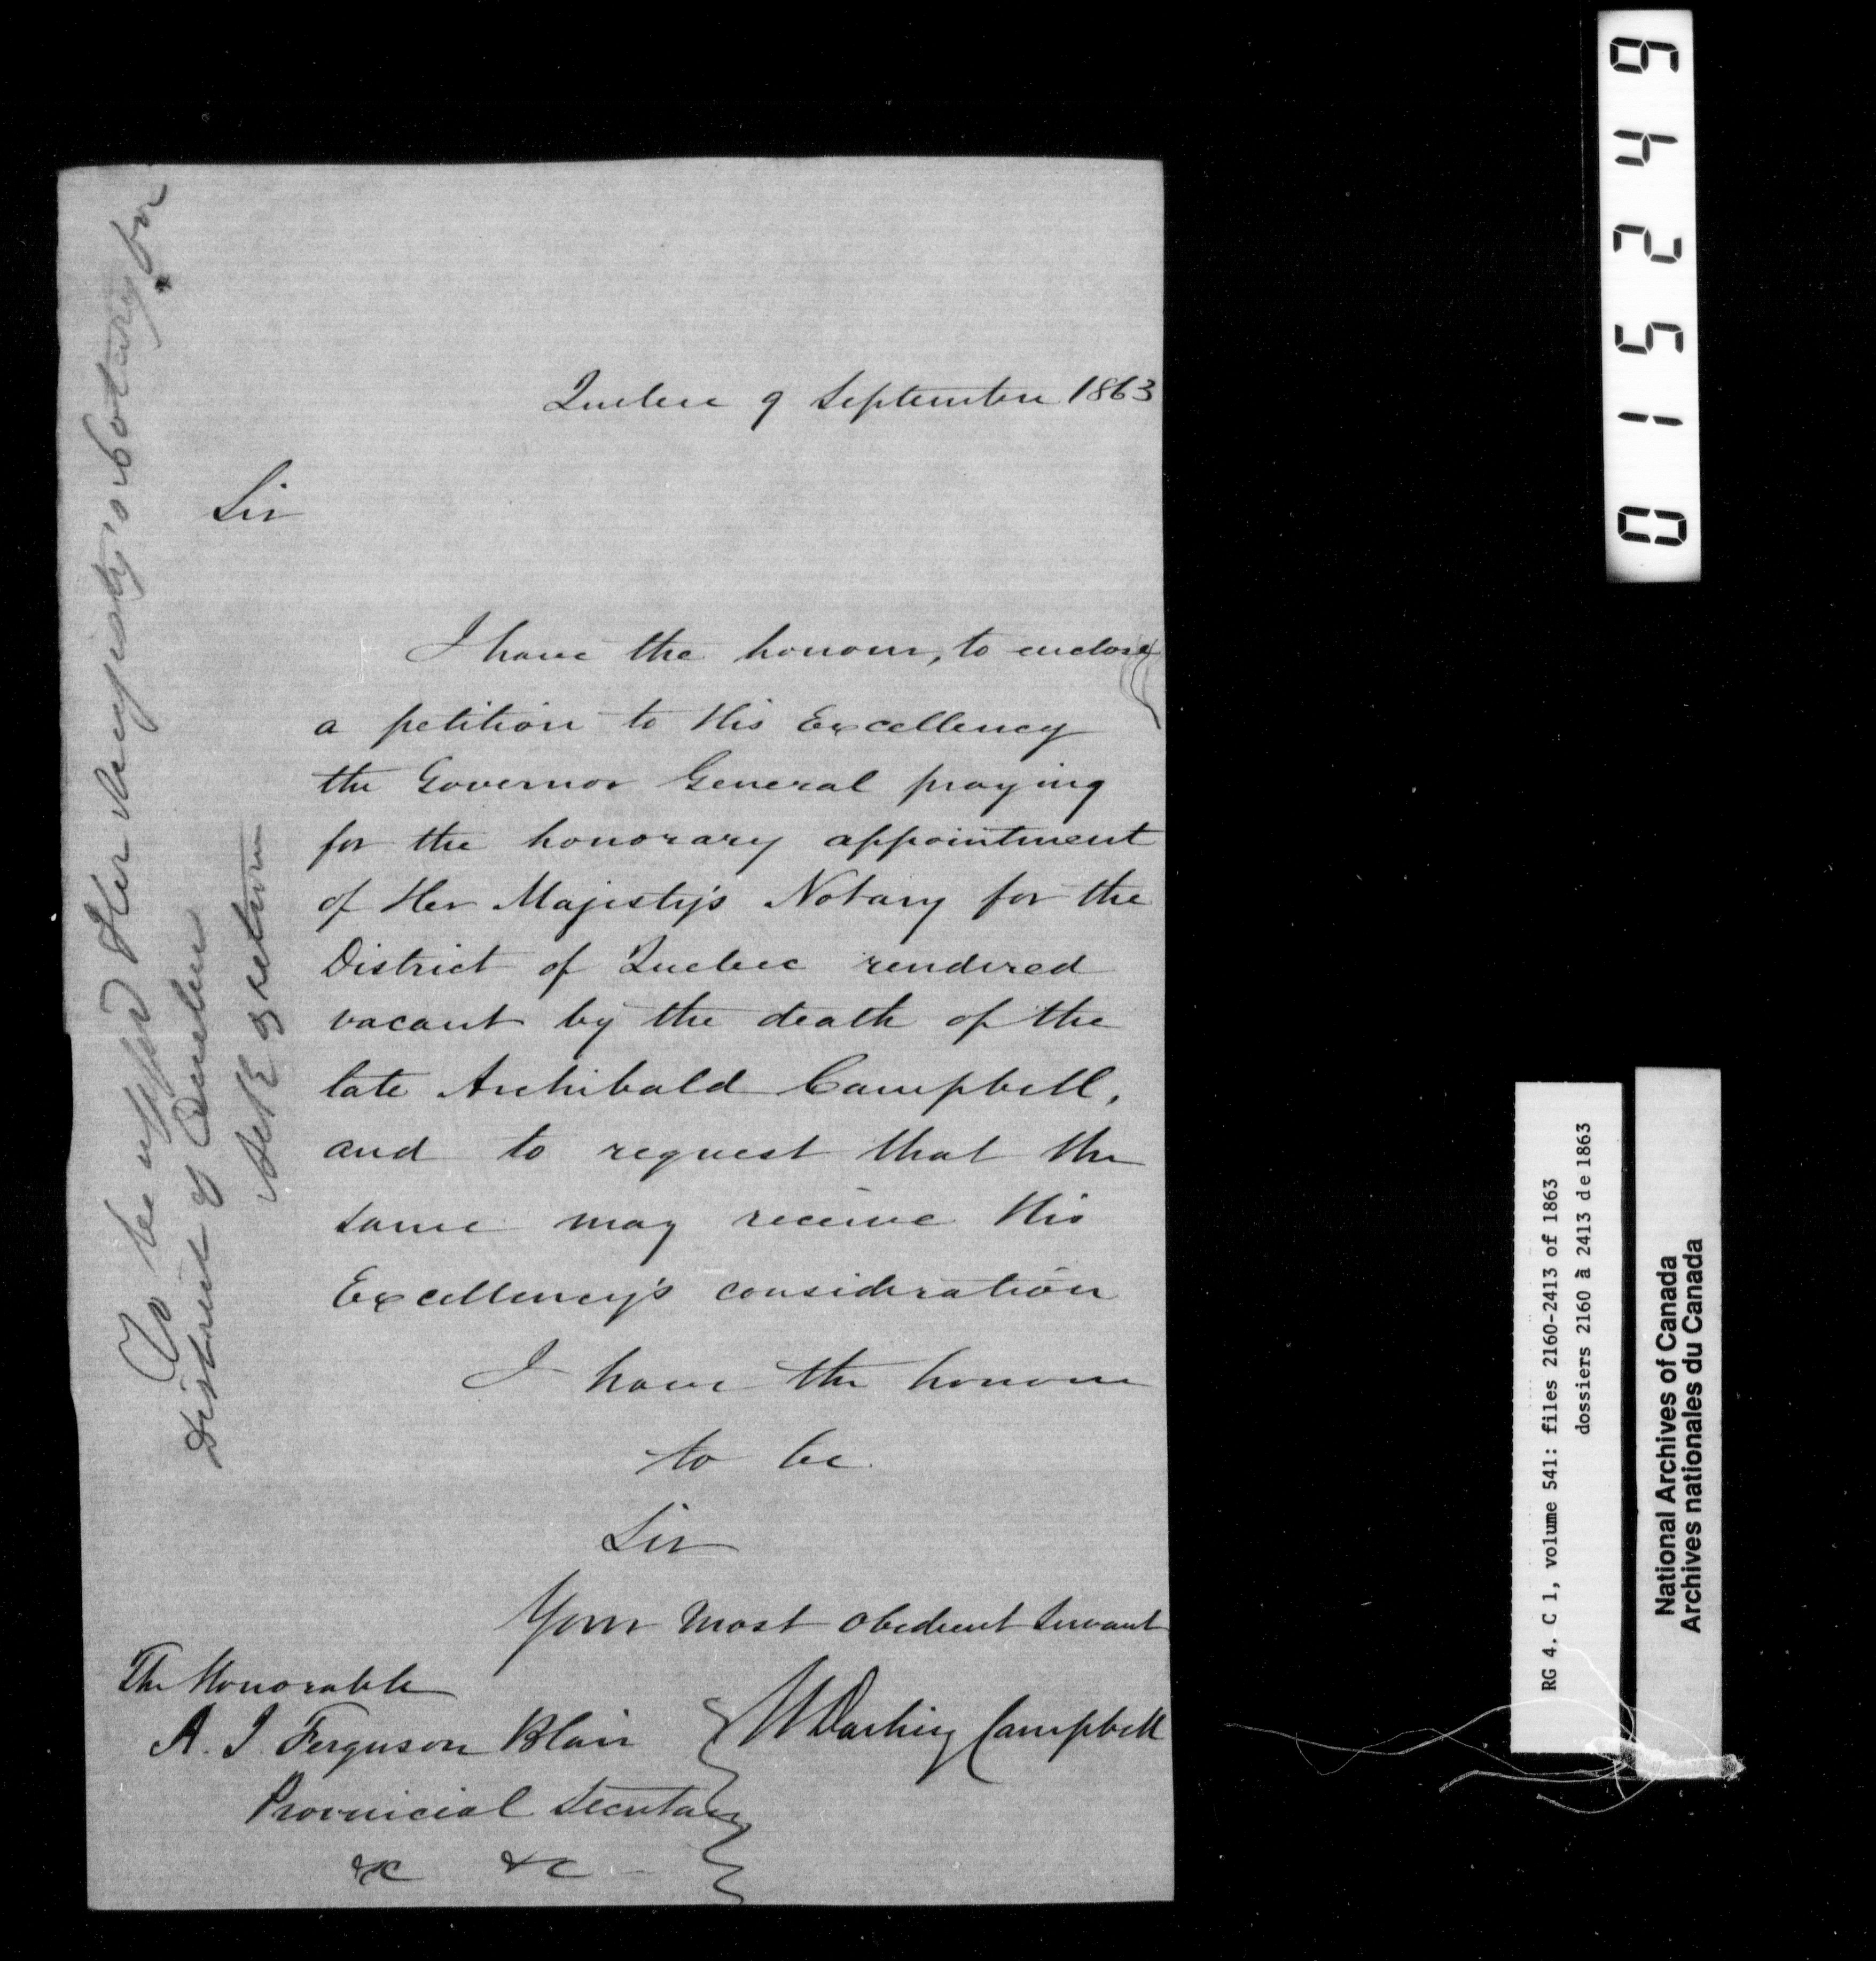 Quebec 9 September 1863
Sir
I have the honour, to enclose
a petition to His Excellency
the Governor General praying
for the honorary appointment
of Her Majesty's Notary for the
District of Quebec rendered
vacant by the death of the
late Archibald Campbell,
and to request that the
same may receive His
Excellency's consideration
I have the honour
to be
Sir
Your most obedient servant
W Darling Campbell
The Honorable
A. J. Ferguson Blair
Provincial Secretary
&c &c
To be appd Her Majesty's Notary for
District of Quebec
return
015249
RG 4, C 1, volume 541: files 2160-2413 of 1863
dossiers 2160 à 2413 de 1863
National Archives of Canada
Archives nationales du Canada